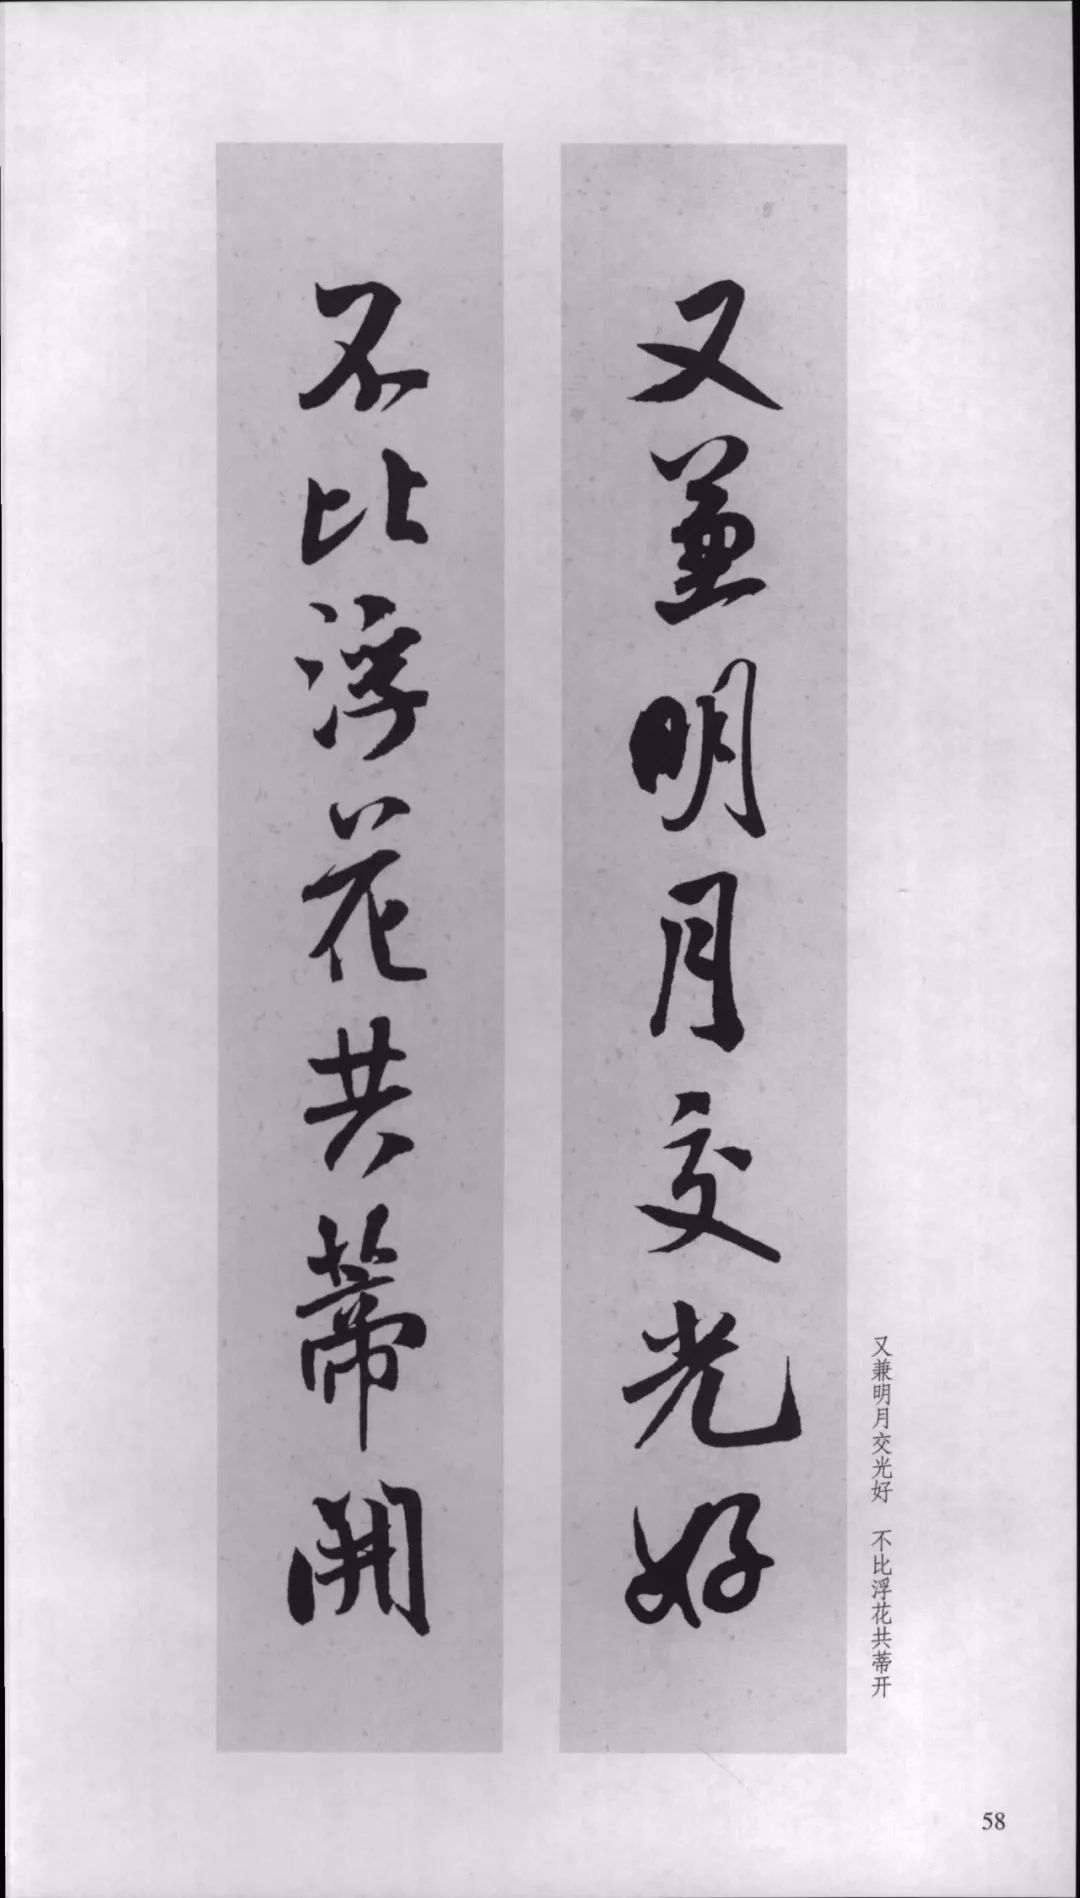 又兼明月交光好
不比浮花共蒂開
又兼明月交光好 不比浮花共蒂开
58